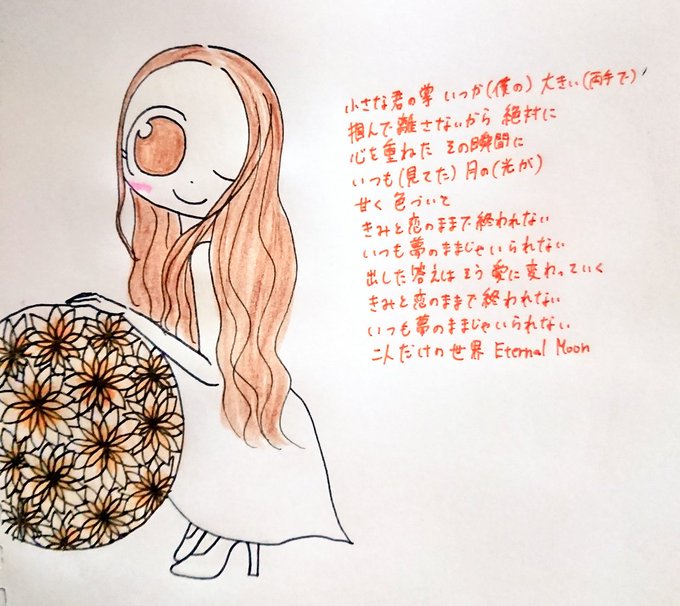 小さな君の掌 いつか(僕の) 大きい(両手で)
掴んで離さないから 絶対に
心を重ねた その瞬間に
いつも(見てた) 月の(光が)
甘く 色づいて
きみと恋のままで終われない
いつも夢のままじゃいられない
出した答えはもう愛に変わっていく
きみと恋のままで終われない
いつも夢のままじゃいられない
二人だけの世界 Eternal Moon